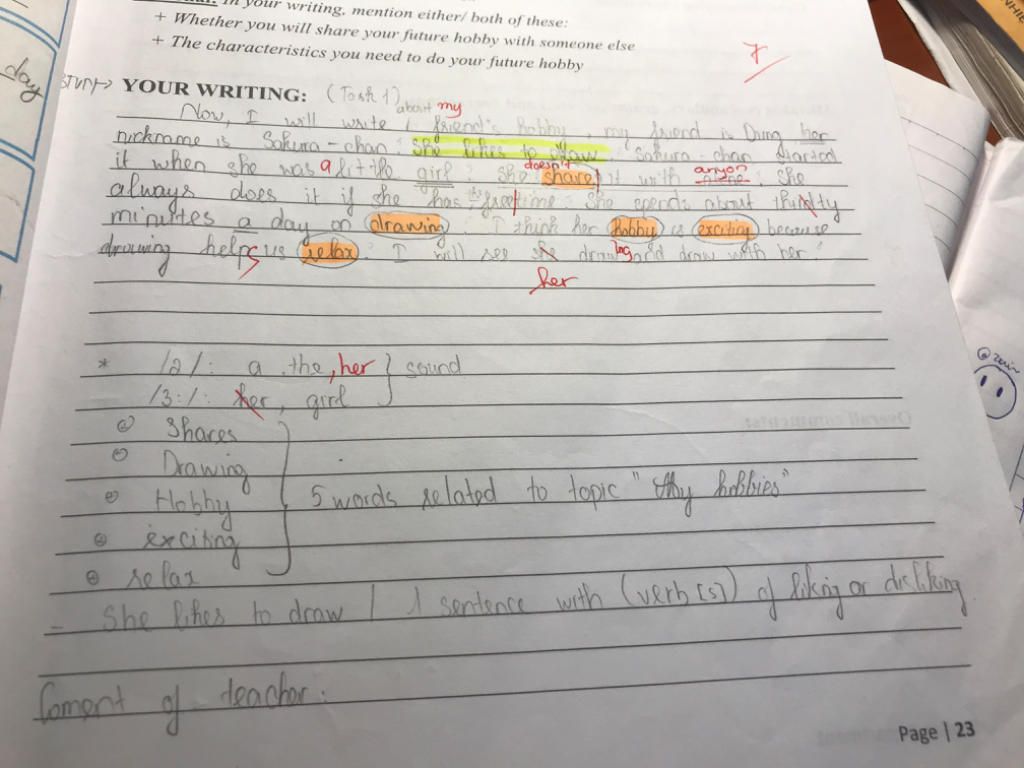 In your writing, mention either/ both of these:
+ Whether you will share your future hobby with someone else
+ The characteristics you need to do your future hobby
YOUR WRITING: (Task 1)
about my
Now, I will write friend's hobby, my friend is Dung her
nickname is Sakura-chan. She likes to draw. Sakura-chan started
it when she was a little girl. She doesn't share it with anyon She
always does it if she has freetime. She spends about thirty
minutes a day on drawing. I think her hobby is exciting because
drawing helps us relax. I will see drawing and draw with her.
her
* /ə/: a, the, her } sound
/3:/: her, girl
Shares
Drawing
Hobby
5 words related to topic " hobbies"
exciting
relax
- She likes to draw / 1 sentence with (verb(s)) of liking or disliking
Coment of teacher:
Page | 23
day